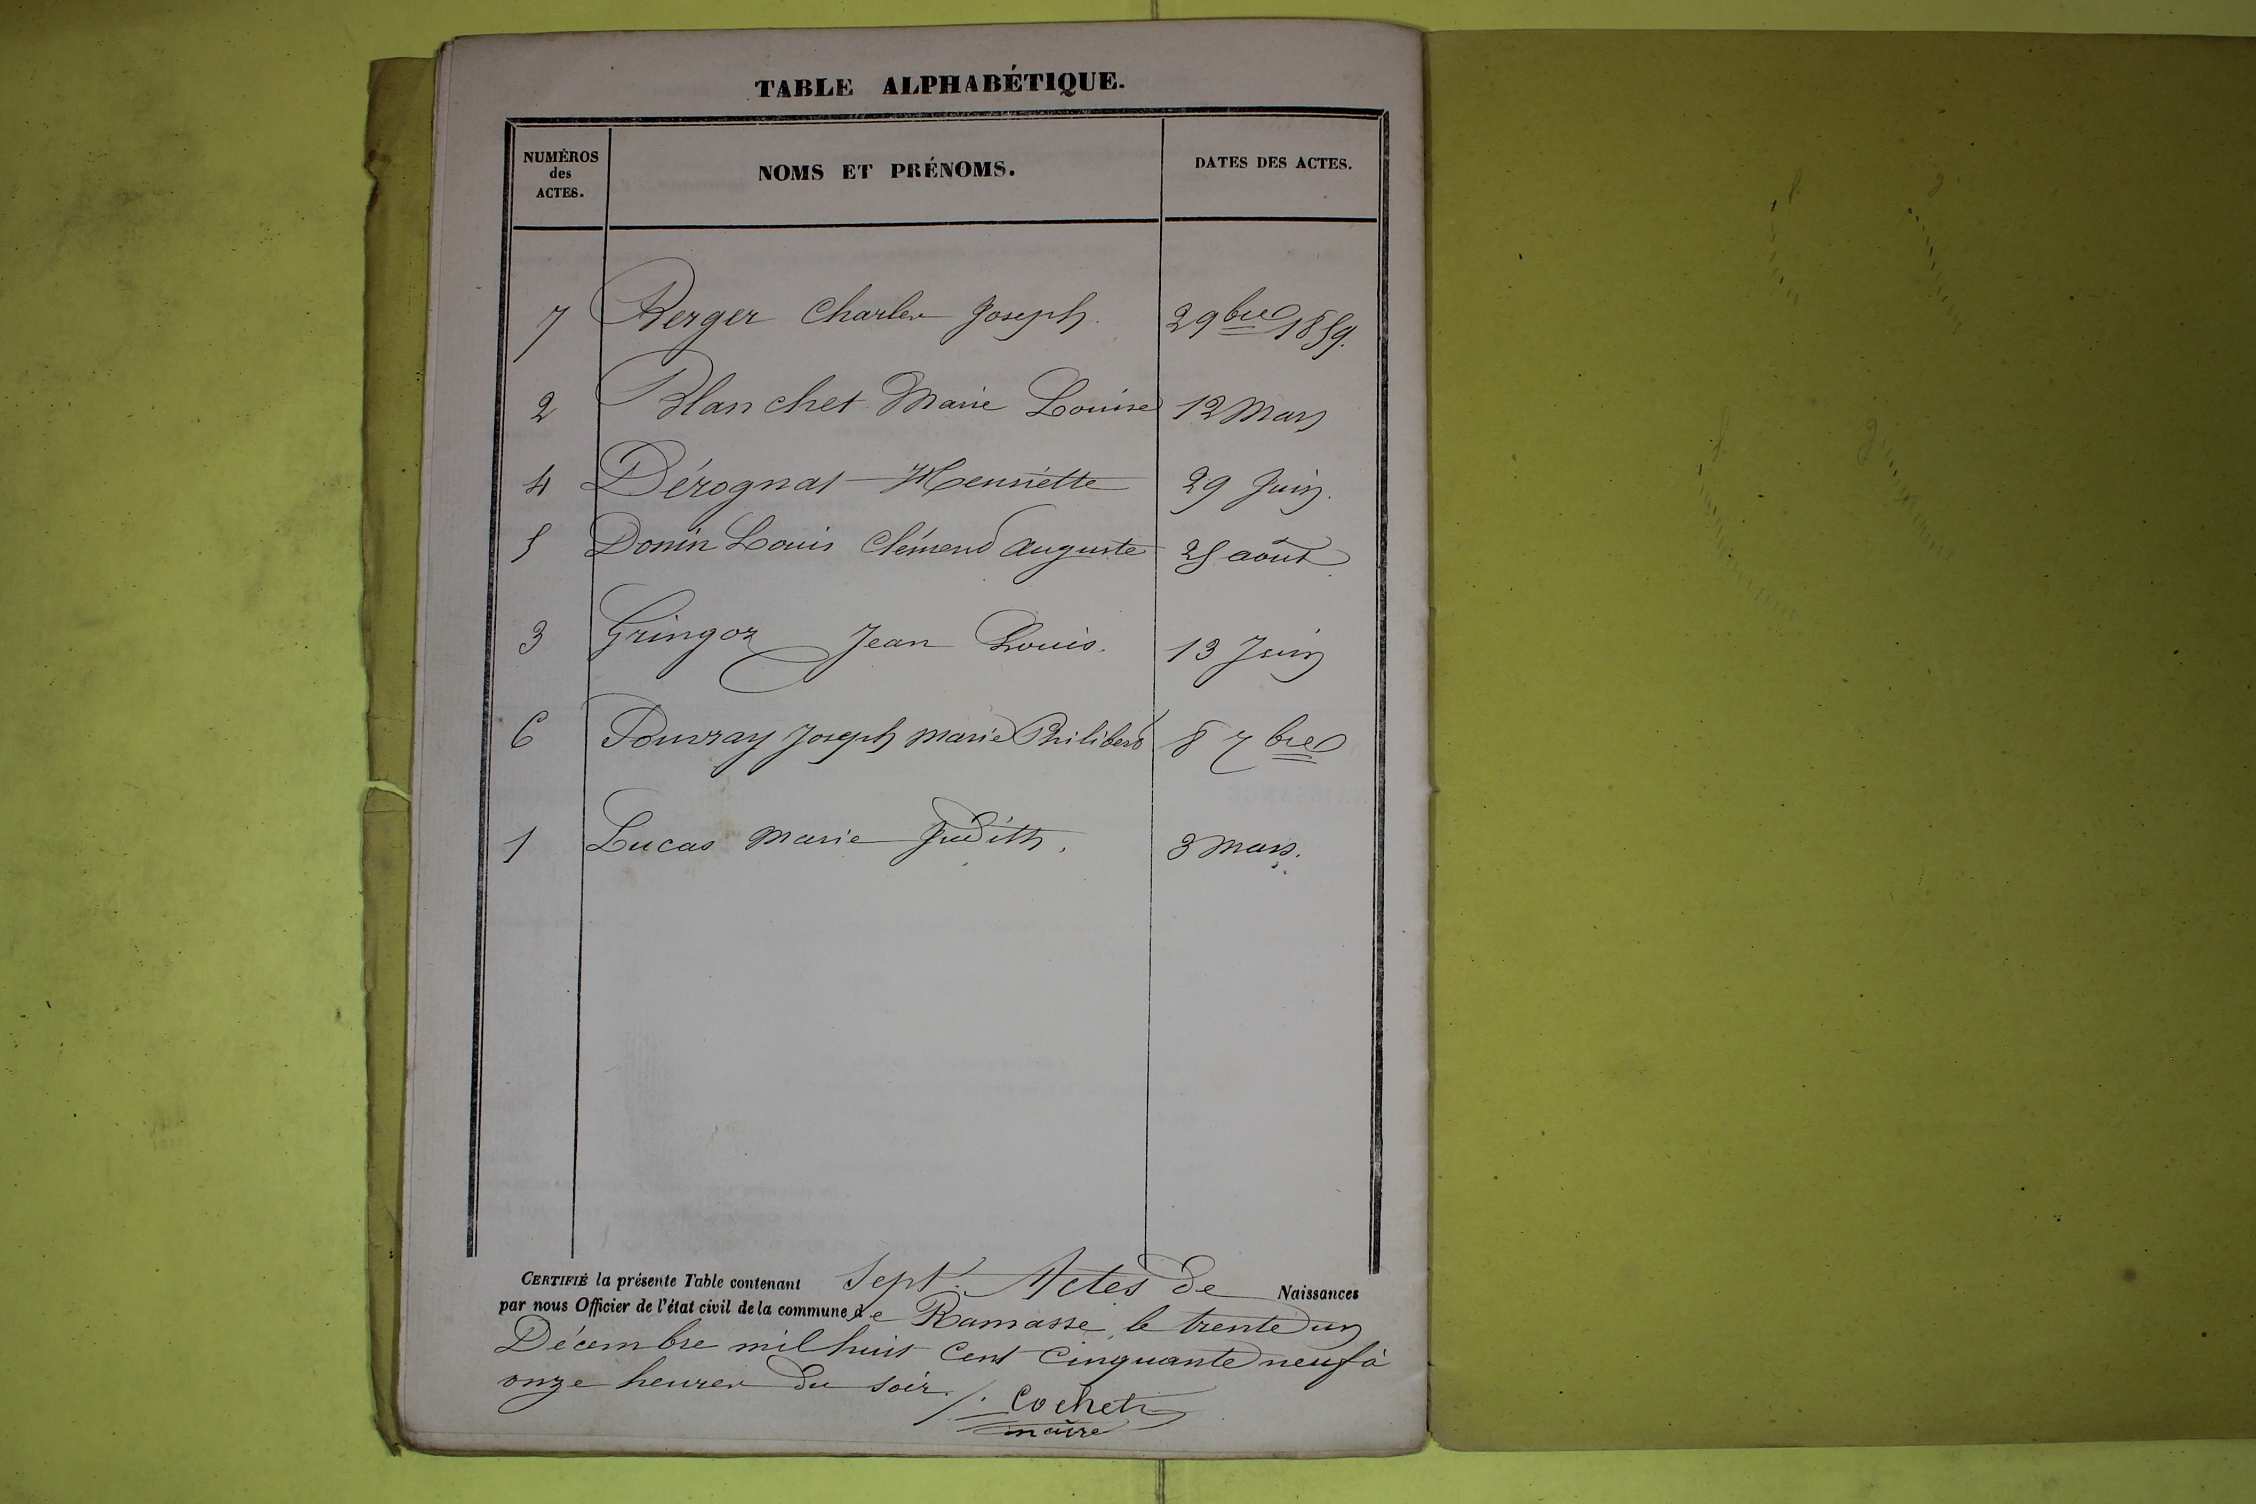 TABLE ALPHABÉTIQUE.
NUMÉROS des ACTES. NOMS ET PRÉNOMS. DATES DES ACTES.
7 Berger Charles Joseph. 2 9bre 1859.
2 Blanchet Marie Louise 12 Mars
4 Dérognat Henriette 29 Juin.
5 Donin Louis Clémend Auguste 25 août
3 Gringoz Jean Louis. 13 Juin
6 Joseph Marie Philibert 8 7bre
1 Lucas Marie Judith. 3 Mars.
CERTIFIÉ la présente Table contenant Sept Actes de Naissances
par nous Officier de l'état civil de la commune de Ramasse, le trente un
Décembre mil huit Cent Cinquante neuf à
onze heures du soir. Cochet
maire